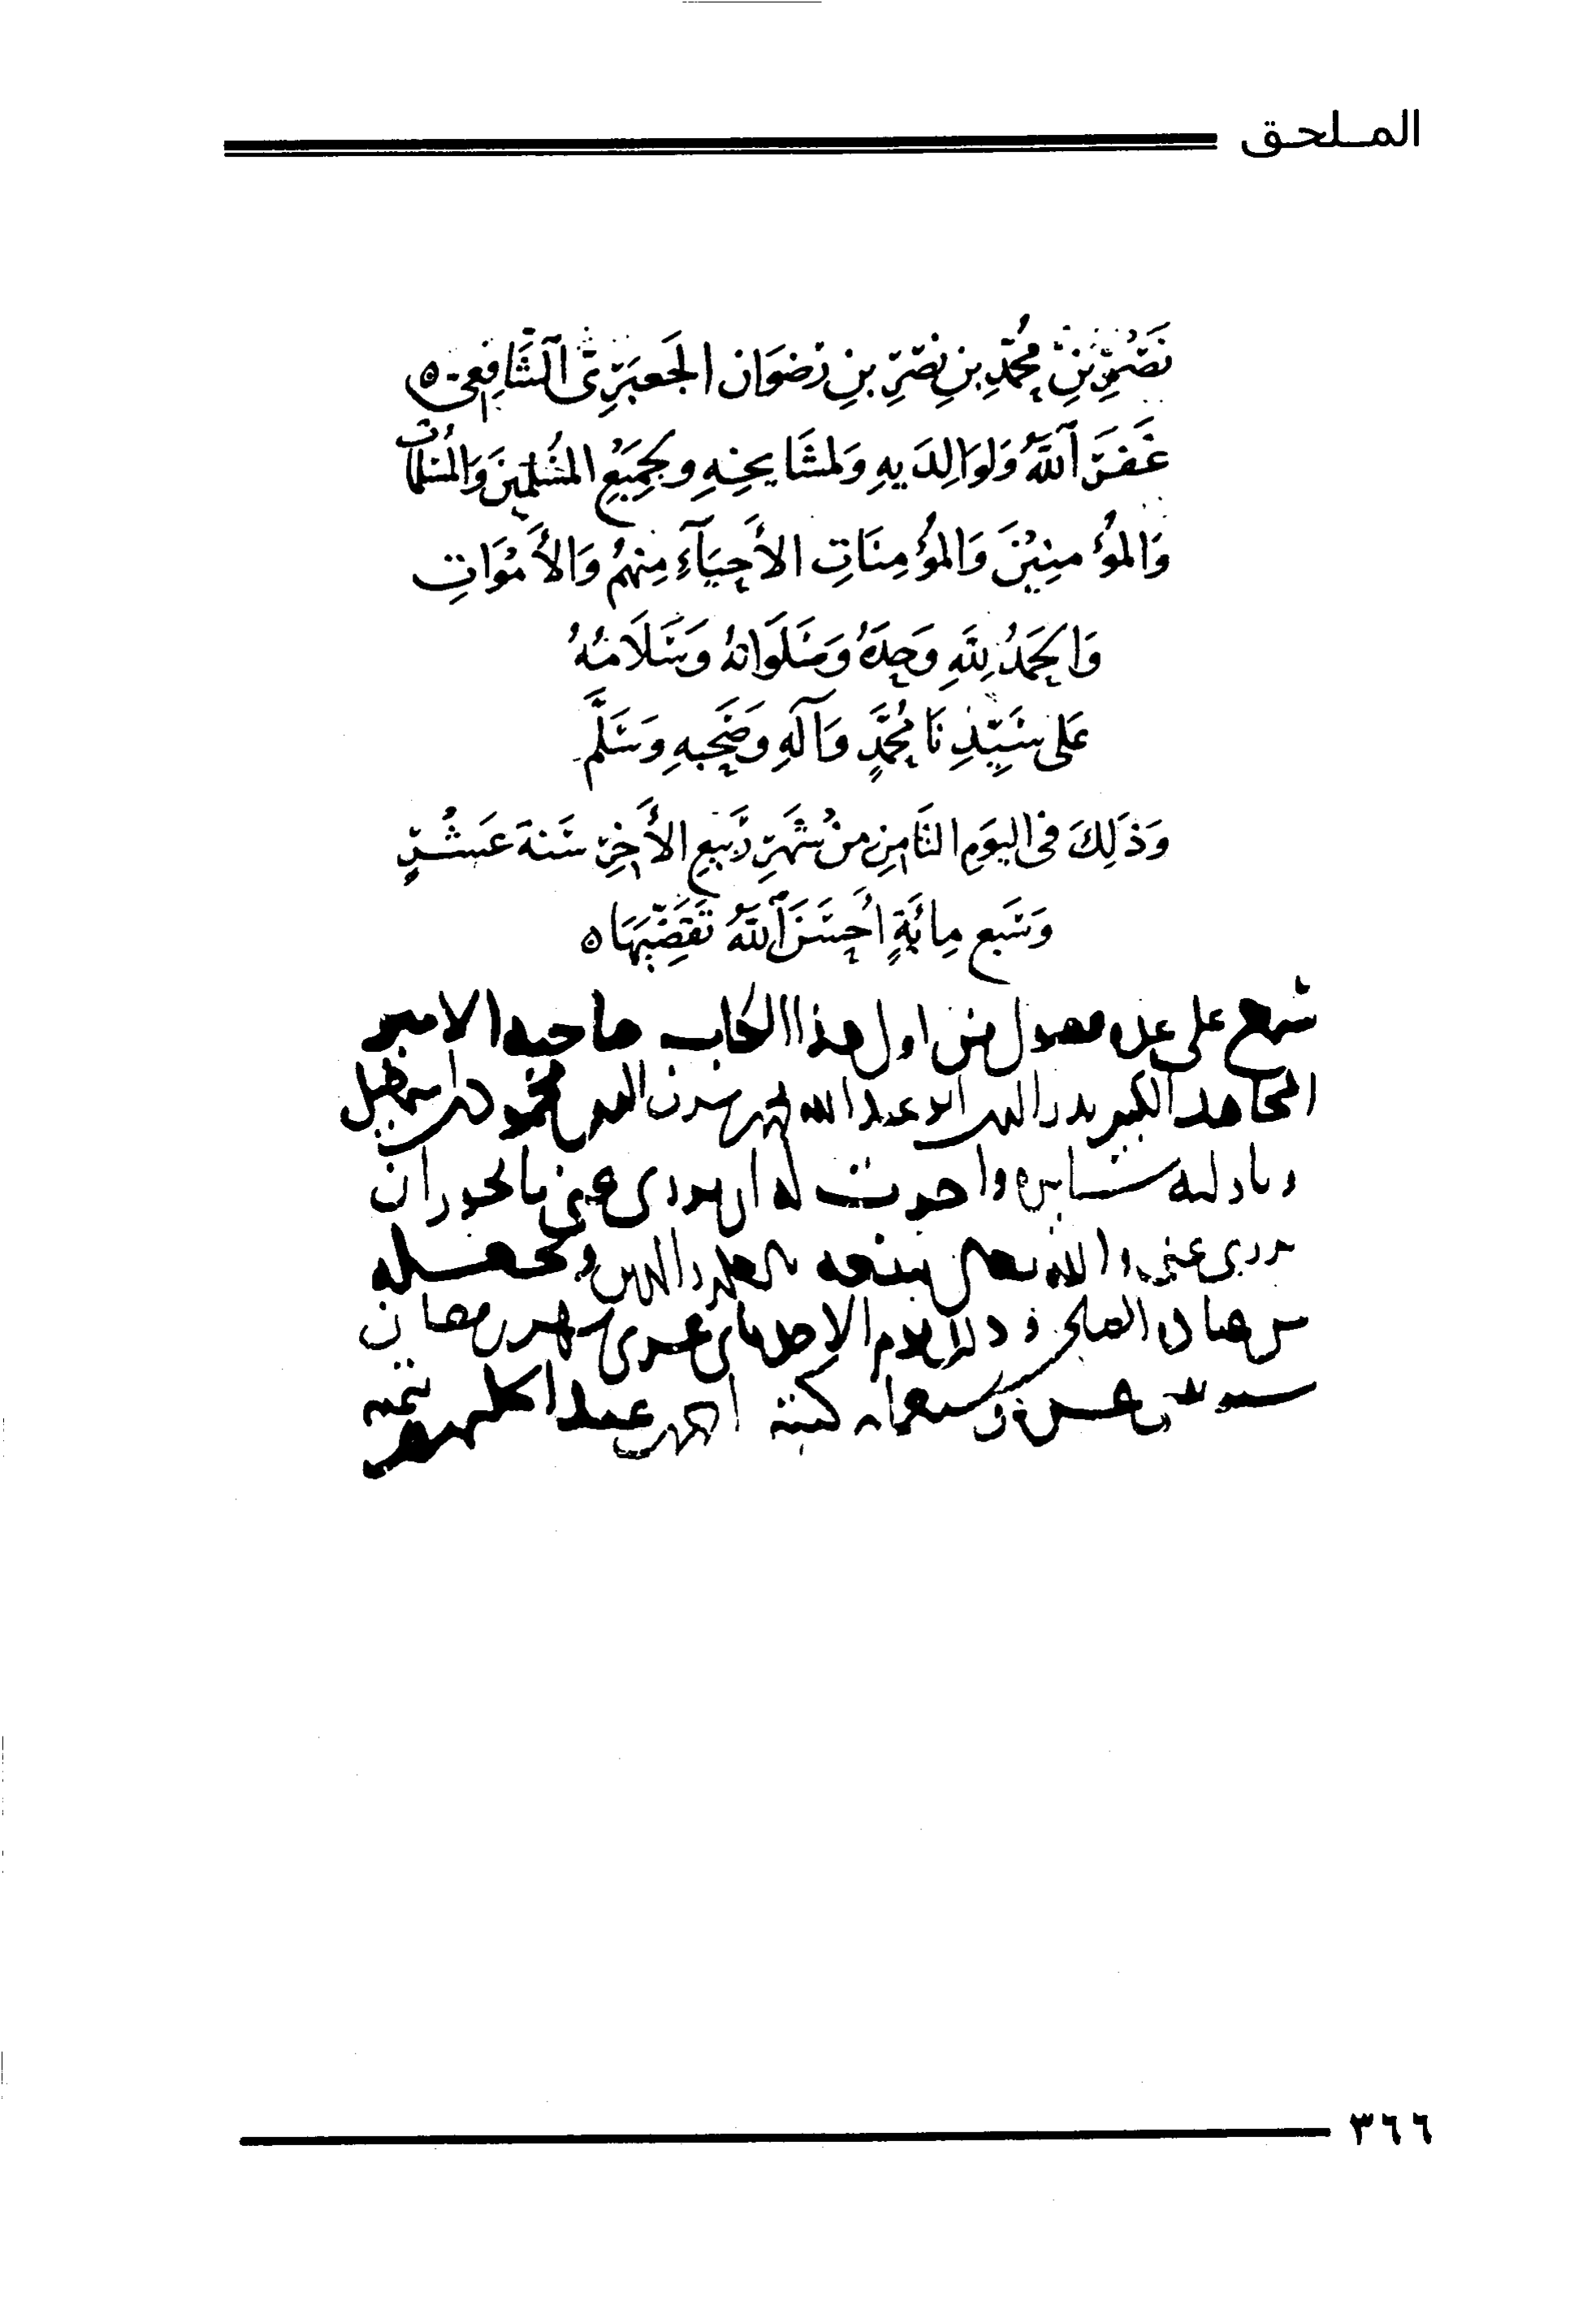 الملحق
نَصْرِ بْنِ مُحَمَّدِ بْنِ نَصْرِ بْنِ رِضْوَانَ الجَعْبَرِيّ الشَّافِعِيّ ه
غَفَرَ اللَّهُ وَلِوَالِدَيهِ وَلمشَايِخِهِ وَلجَمِيْعِ المُسْلِمِيْنَ وَالمُسْلِمَاتِ
وَالمُؤْمِنِيْنَ وَالمُؤْمِنَاتِ الأَحْيَآءِ مِنْهُمْ وَالأَمْوَاتِ
وَالحَمْدُ لِلَّهِ وَحْدَهُ وَصَلَوَاتُهُ وَسَلَامُهُ
عَلَى سَيِّدِنَا مُحَمَّدٍ وَآلِهِ وَصَحْبِهِ وَسَلَّمَ
وَذَلِكَ فِي اليَوْمِ الثَّامِنِ مِنْ شَهْرِ رَبِيْعِ الأَخِرِ سَنَةَ عَشْرٍ
وَسَبْعِ مِائَةٍ أَحْسَنَ اللَّهُ تَقَضِّيَهَا ه
سمع على عدة فصول من اول هذا الكتاب صاحبه الامير
المجاهد الكبير بدر الدين ابو عبد الله محمد بن الدين محمود بن اسمعيل
وناولته واجزت له ان يروى عنى ما يجوز ان
يروى عنى والله تعالى ينفعه بالعلم والدين ويجعله
من الصالحين وذلك يوم الاحد عشرى شهر رمضان
سنة عشرة وسبعمايه كتبه احمد بن عبد الحليم بن تيميه
٣٦٦